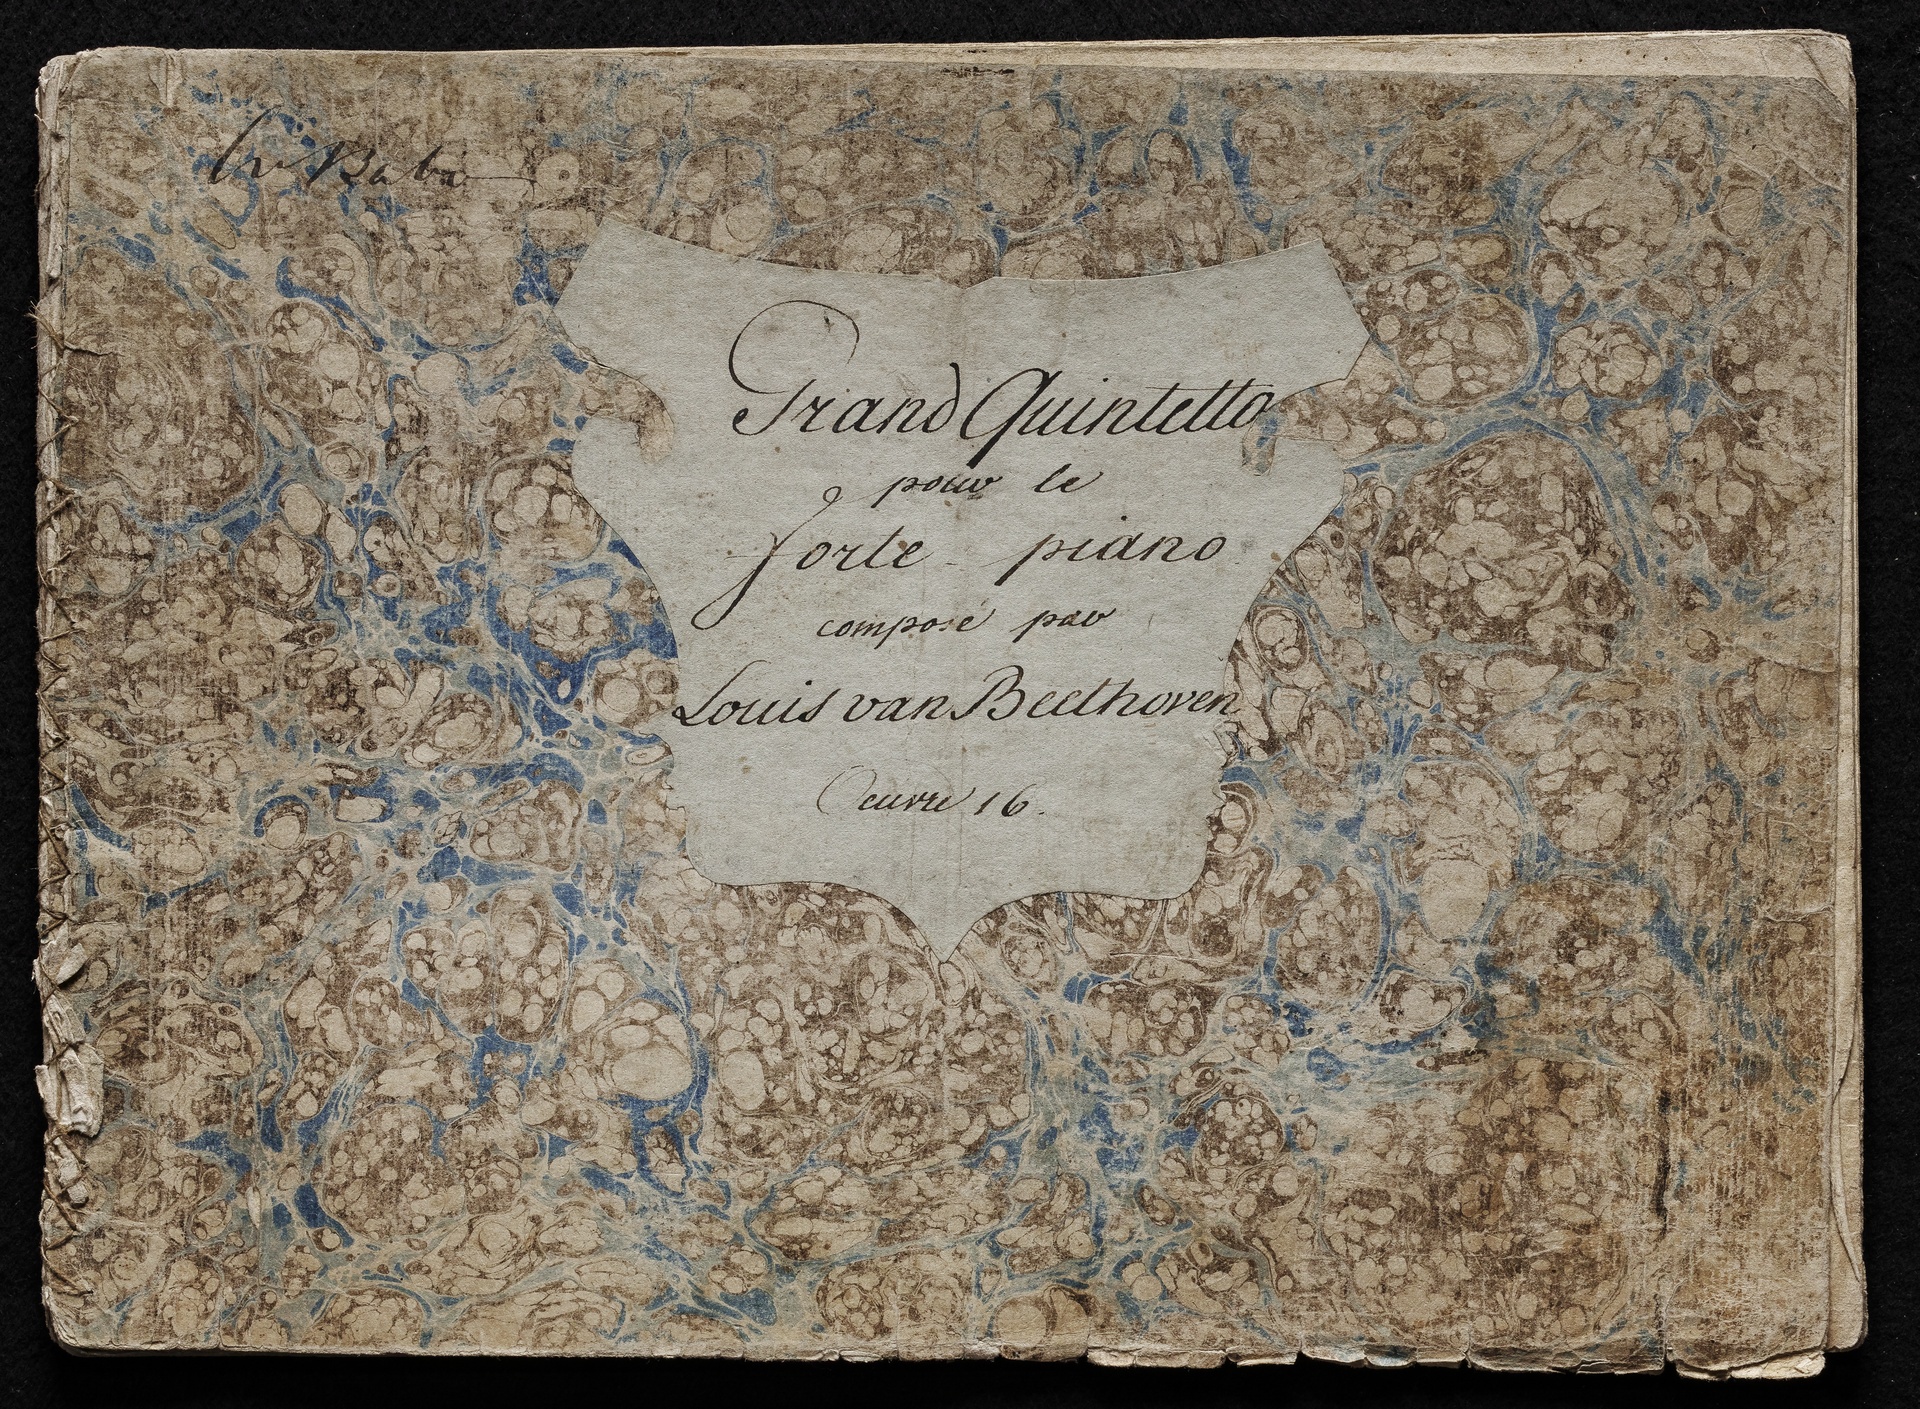 Grand Quintetto
pour le
forte-piano
composé par
Louis van Beethoven
Oeuvre 16.